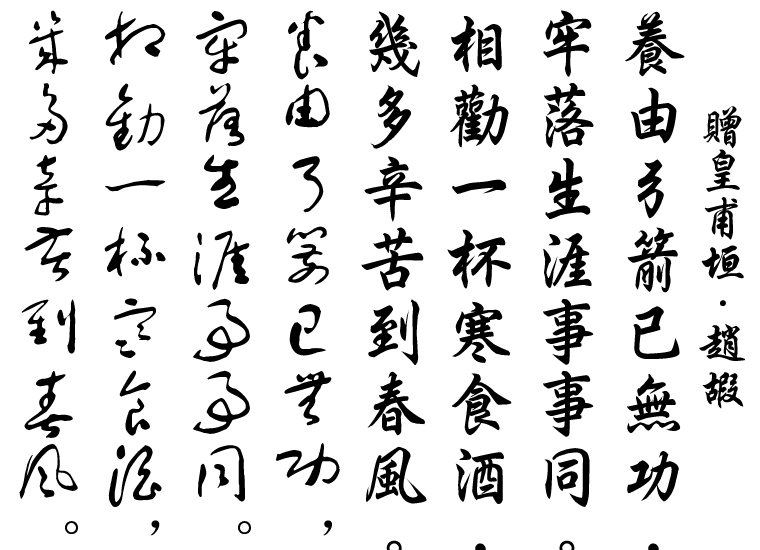 贈皇甫垣·趙嘏
養由弓箭已無功，
牢落生涯事事同。
相勸一杯寒食酒，
幾多辛苦到春風。
養由弓箭已無功，
牢落生涯事事同。
相勸一杯寒食酒，
幾多辛苦到春風。